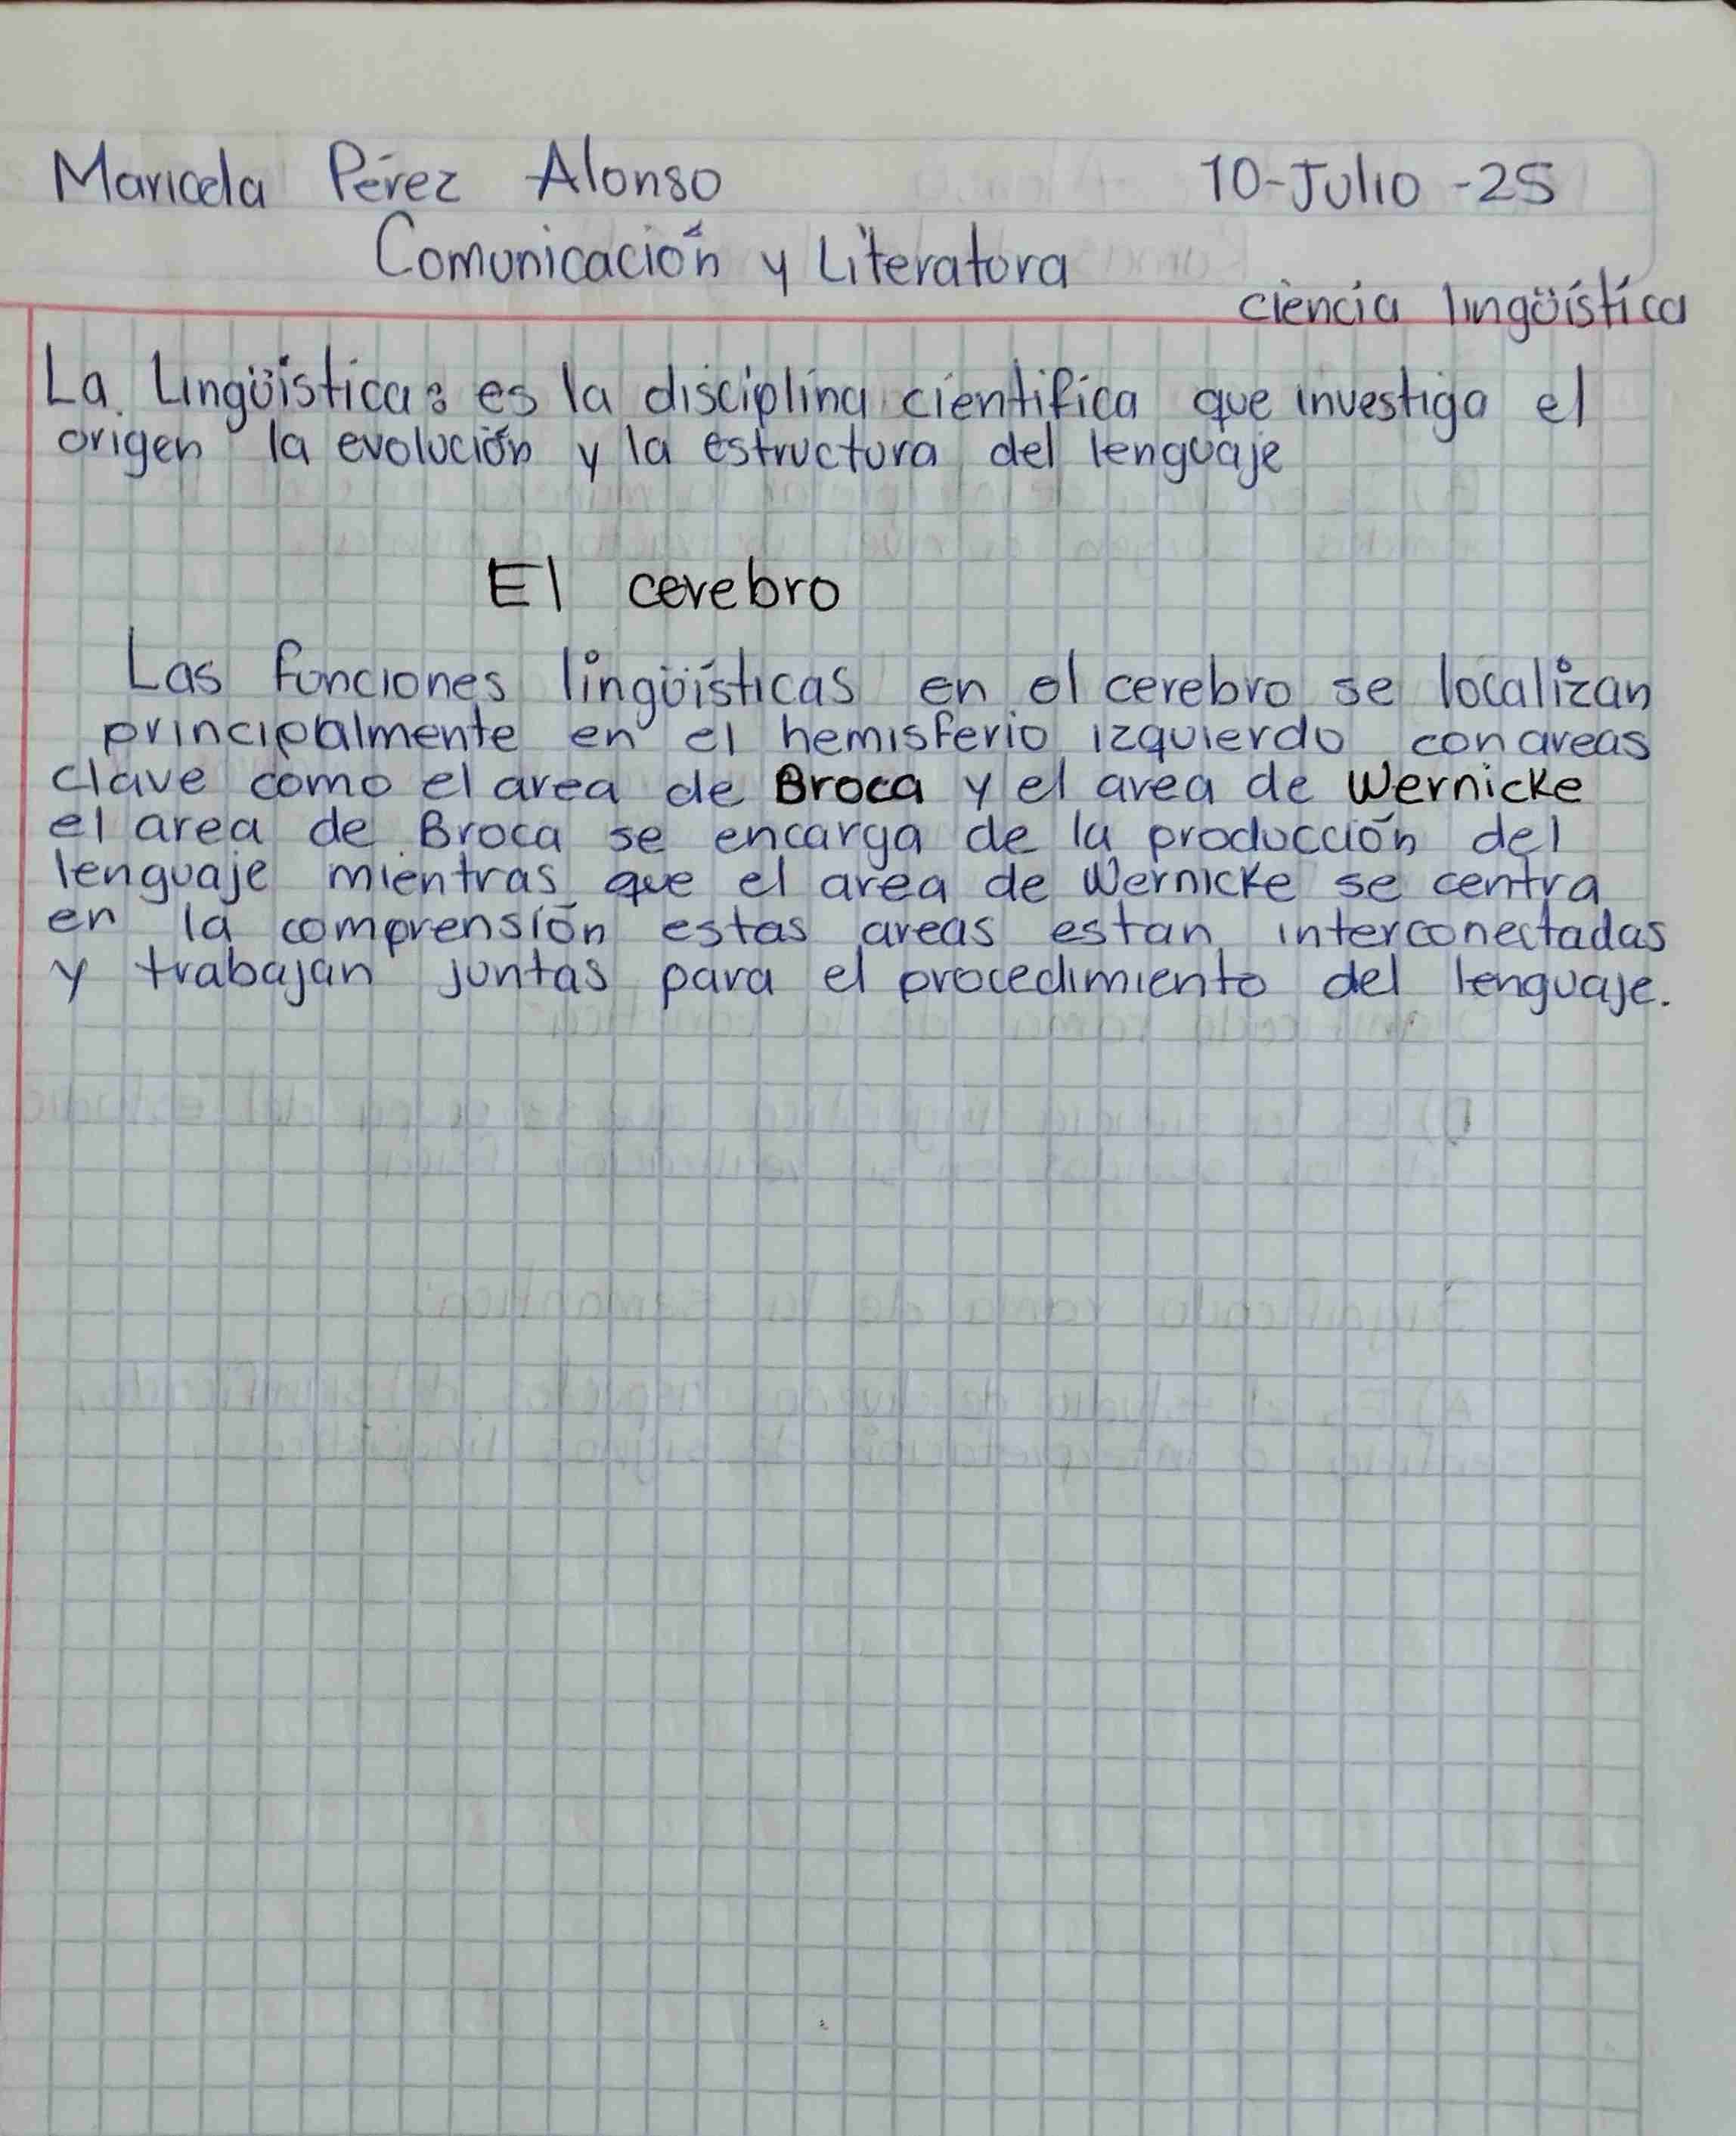 Maricela Pérez Alonso 10-Julio-25
Comunicación y Literatura
ciencia lingüística
La Lingüistica: es la disciplina cientifica que investiga el
origen la evolución y la estructura del lenguaje
El cerebro
Las funciones lingüísticas en el cerebro se localizan
principalmente en el hemisferio izquierdo con areas
clave como el area de Broca y el area de Wernicke
el area de Broca se encarga de la producción del
lenguaje mientras que el area de Wernicke se centra
en la comprensión estas areas estan interconectadas
y trabajan juntas para el procedimiento del lenguaje.